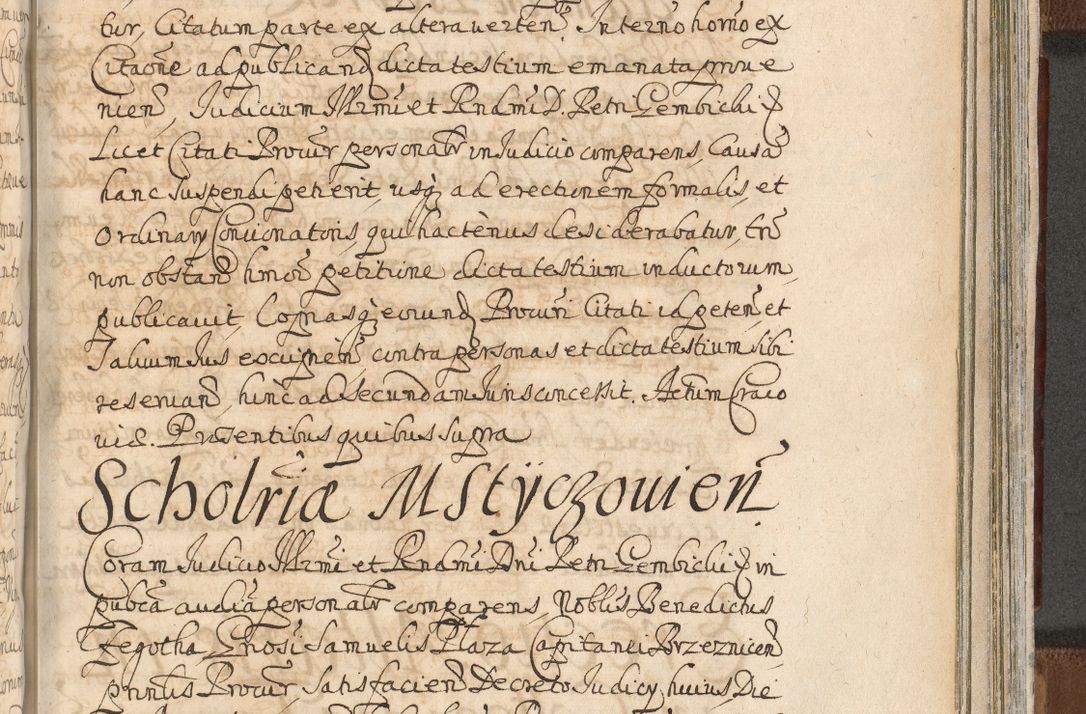 tur, Citatum parte ex altera verten̄. In termo homo ex
Citaōne ad publicand dicta testium emanata prove
nien̄, Judicium Illrmi et Rndmi D. Petri Gembicki Ep
Licet Citati Procur personalr in Judicio comparens, Causā
hanc suspendi petierit, usq ad erectionem formalis, et
Ordinary Concionatoris, qui hactenus desiderabatur, trn̄
non obstan̄ hmoi petitione dicta testium inductorum
publicavit, Copiasq eorund Procuri Citati id peten̄ et
salvum Jus excipien̄ contra personas et dicta testium sibi
reservan̄, hinc ad secundam Juris concessit. Actum Craco
viæ. Præsentibus quibus supra
Scholriæ Mstÿczovien̄
Coram Judicio Illrmi et Rndmi Dni Petri Gembicki Ep in
pubca audiā personalr comparens, Noblis Benedictus
Zegotha, Gnosi Samuelis Plaza Capitanei Brzeznicen̄
prntis Procur satisfacien̄ Decreto Judicy, huius Die